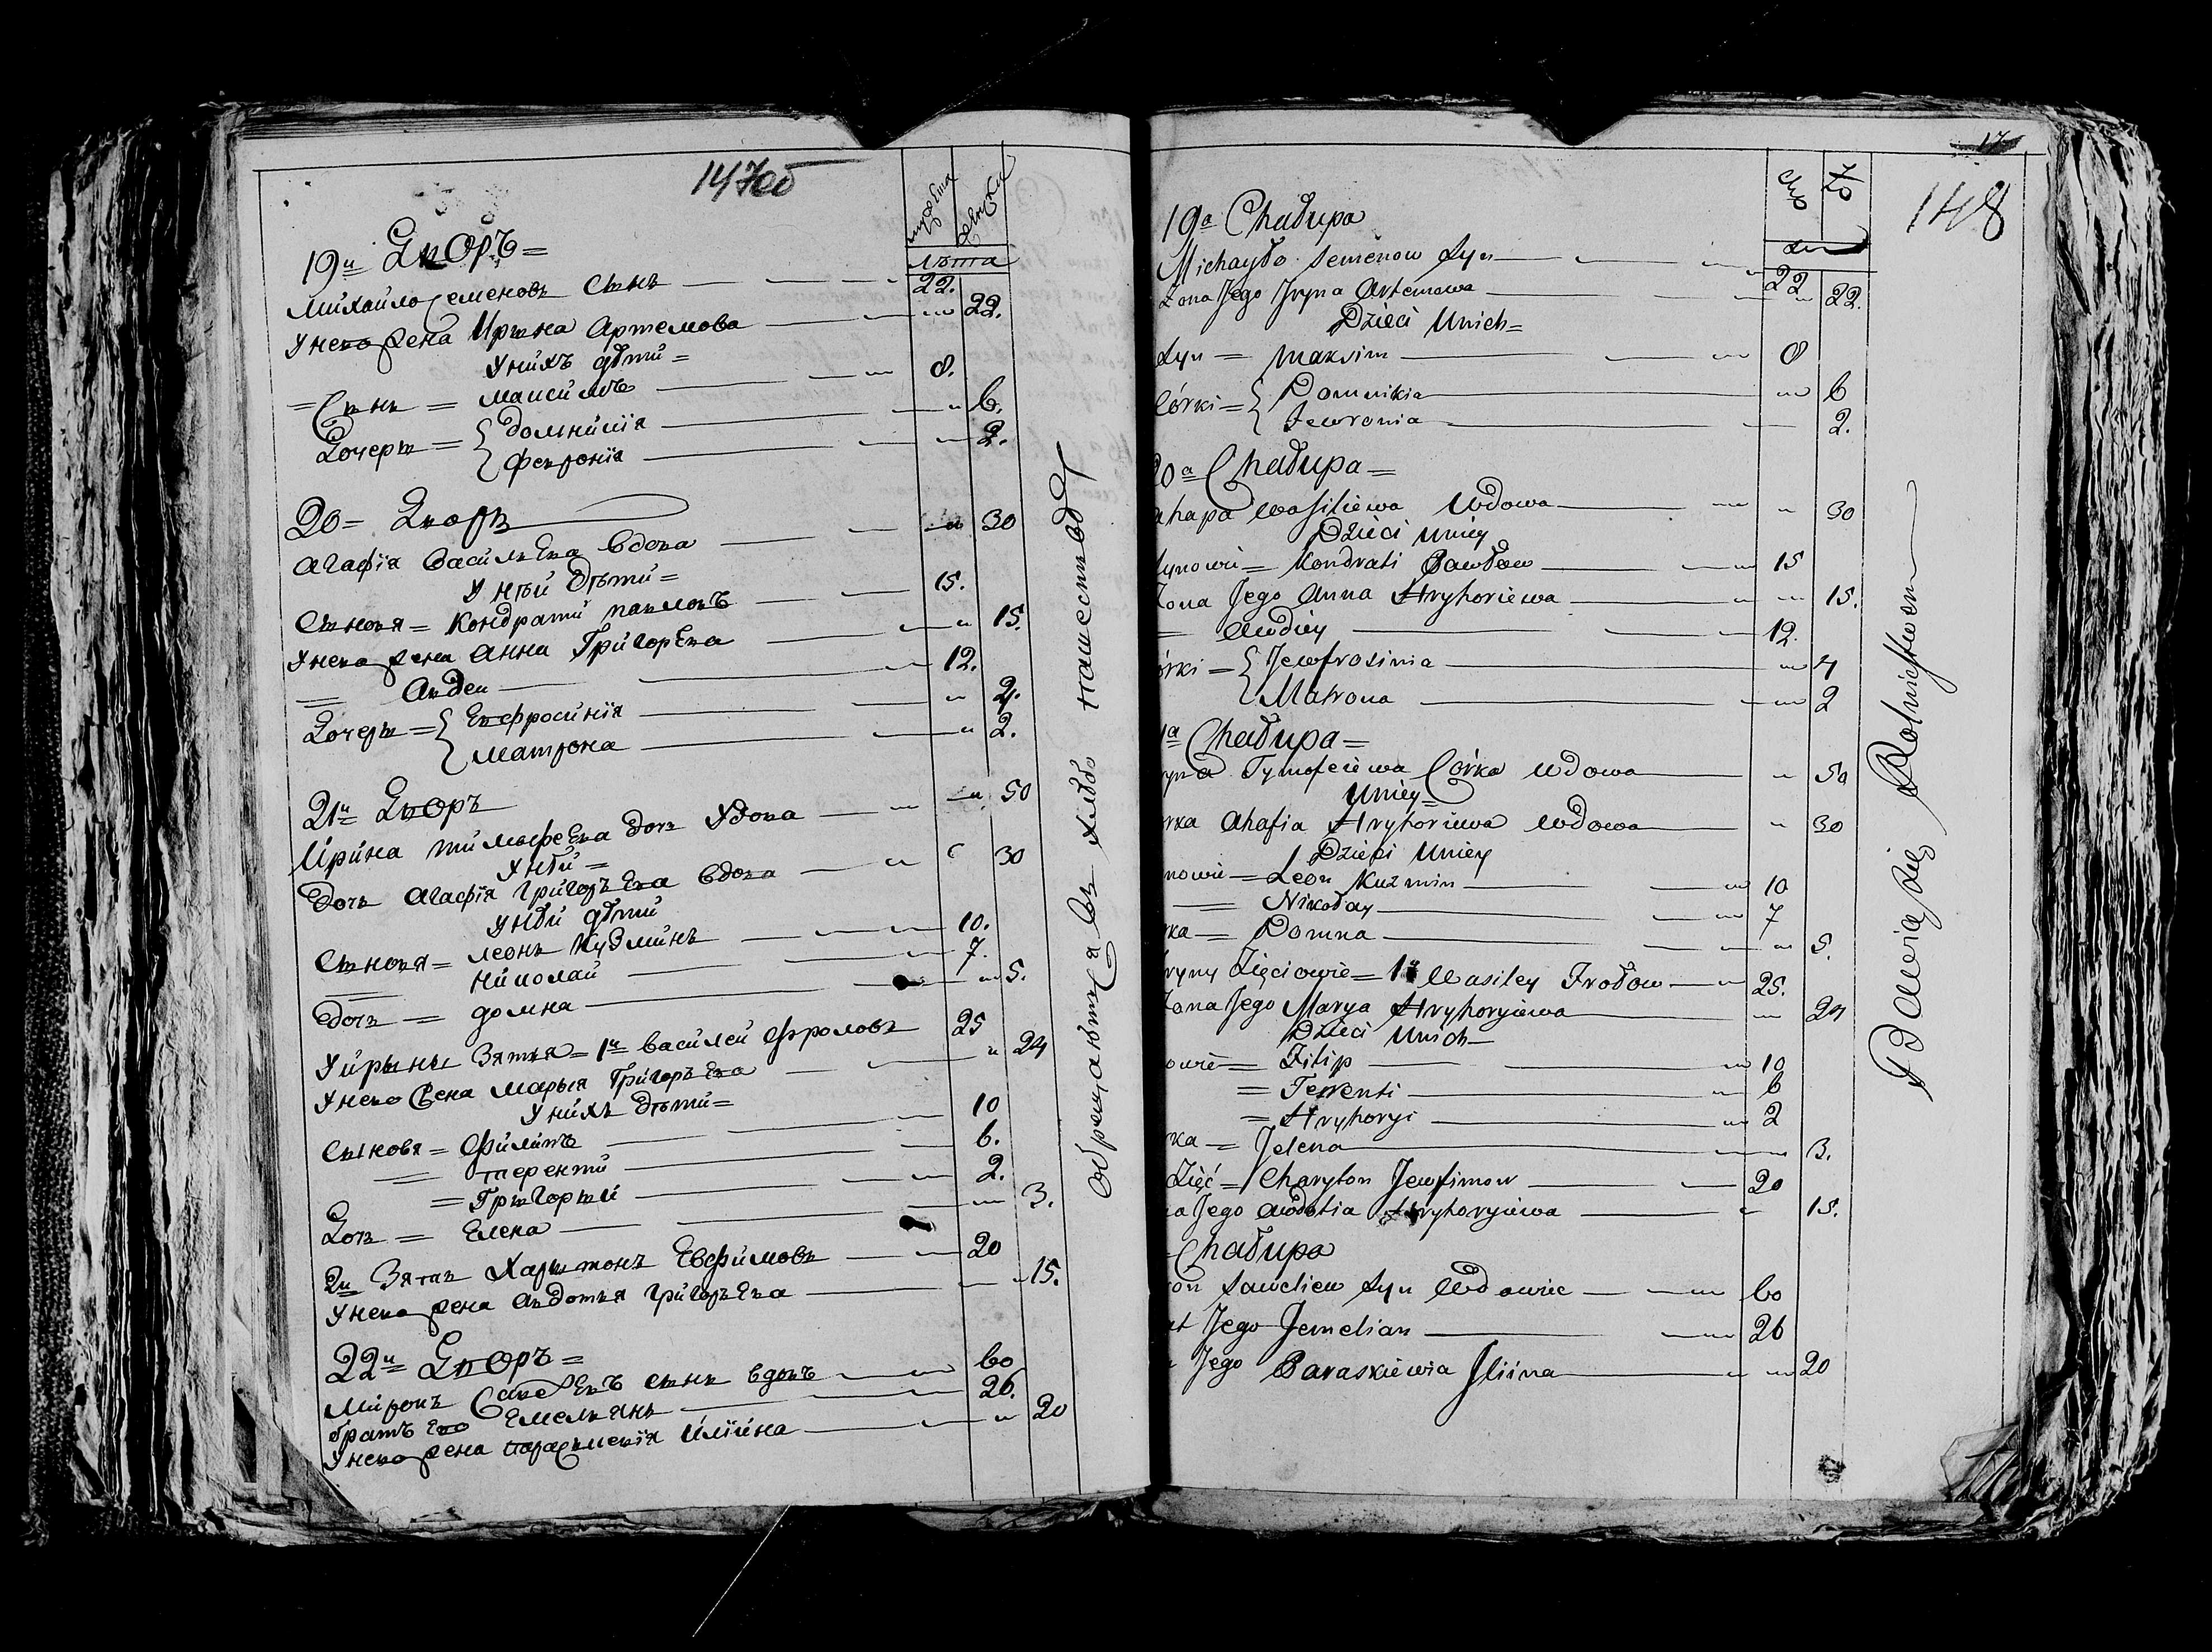 147об
мужеска женска
лѣта
19й Дворъ=
Михайло Семеновъ сынъ 22.
У него жена Ирына Артемова 22.
У нихъ дѣти=
=Сынъ= Максимъ 8.
Дочеры= Домникія 6.
Февронія 2.
20= Дворъ
Агафія Васильева вдова 30
У ней дѣти=
Сыновя= Кондрати Павловъ 15.
У него жена Анна Григорева 15.
= Авдеи 12.
Дочеры= Евфросинія 4.
Матрона 2.
21й Дворъ
Ирина Тимофеева дочь удова 50
У ней=
Дочь Агафія Григорьева вдова 30
У ней дѣти
Сыновя= Леонъ Кузминъ 10.
= Николай 7.
Дочь= Домна 5.
У Ирыны зятья= 1й Василей Фроловъ 25
У него жена Марья Григорьева 24
У нихъ дѣти=
Сыновя= Филипъ 10
= Теренти 6.
= Грыгорый 2.
Дочь= Елена 3.
2й Зять Харытонъ Евфимовъ 20
У него жена Авдотья Григорьева 15.
22й Дворъ=
Миронъ Савельевъ сынъ вдовъ 60
Братъ его Емельянъ 26.
У него жена Параскевія Иліина 20
Обрещаются въ хлѣбо пашествѣ
17
148
19a Chałupa
Michayło Semenow Syn 22
Żona Jego Iryna Artemowa 22.
Dzieci Unich=
Syn= Maxsim 8
Córki= Domnikia 6
Jewronia 2.
20a Chałupa=
ahapa Wasiliewa Wdowa 30
Dzieci Uniey
synowie= Kondrati Pawłow 15
Żona Jego Anna Hryhoriewa 15.
= Awdiey 12.
órki= Jewfrosinia 4
Matrona 2
1a Chałupa=
ryna Tymofeiewa Córka Wdowa 50
Uniey=
órka Ahafia Hryhoriewa Wdowa 30
Dzieci Uniey
nowie= Leon Kuzmin 10
= Nikołay 7
ka= Domna 5.
ryny Zięciowie= 1y Wasiley Frołow 25.
Żona Jego Marya Hryhoryiewa 24
Dzieci Unich=
owie= Filip 10
= Terenti 6
= Hryhoryi 2
ka= Jelena 3.
Zięć= Charyton Jewfimow 20
na Jego Awdotia Hryhoryiewa 15.
Chałupa
ron Saweliew Syn Wdowiec 60
at Jego Jemelian 26
a Jego Paraskiewia Iliina 20
Bawią się Rolnictwem